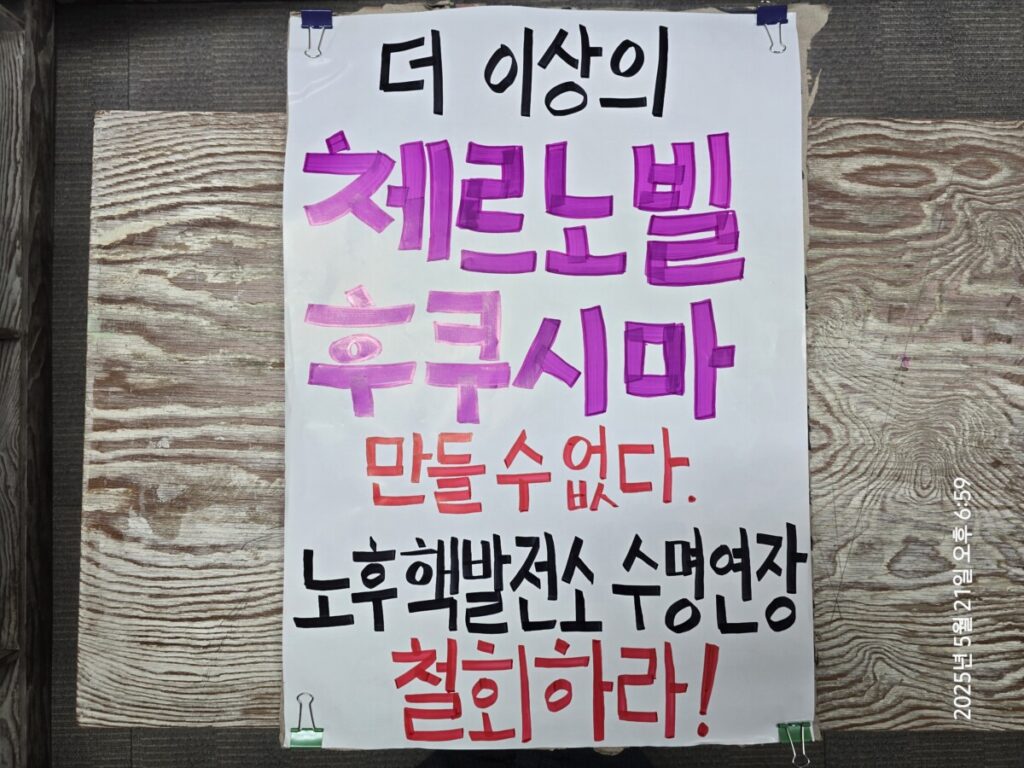 더 이상의
체르노빌
후쿠시마
만들 수 없다.
노후핵발전소 수명연장
철회하라!
2025년 5월 21일 오후 6:59